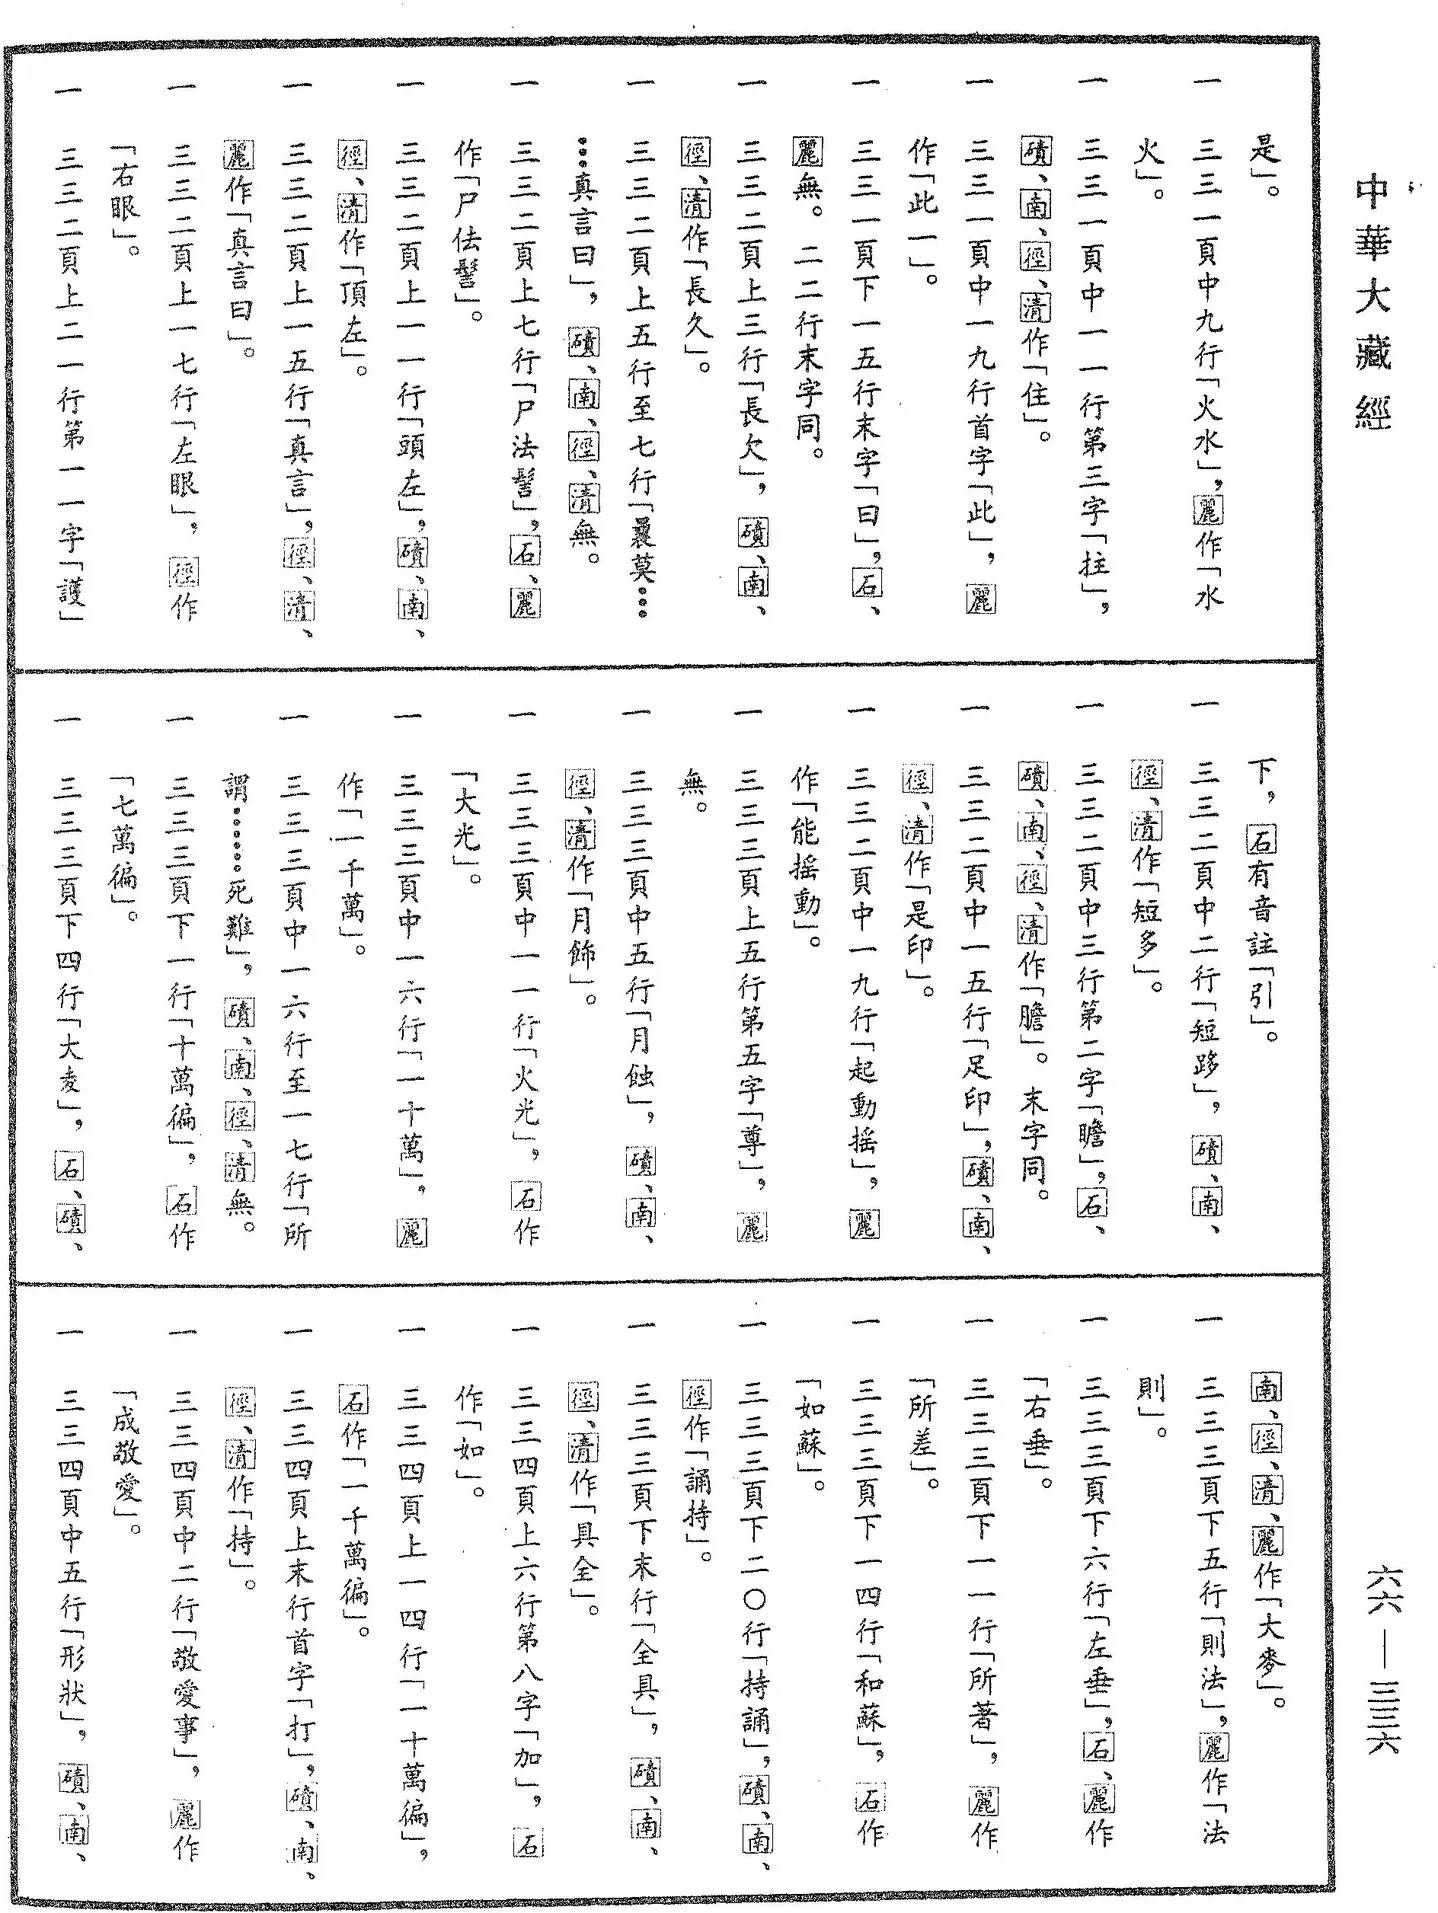 中華大藏經
是」。
一 三三一頁中九行「火水」，麗作「水
火」。
一 三三一頁中一一行第三字「拄」，
磧、南、徑、清作「住」。
一 三三一頁中一九行首字「此」，麗
作「此一」。
一 三三一頁下一五行末字「曰」，石、
麗無。二二行末字同。
一 三三二頁上三行「長欠」，磧、南、
徑、清作「長久」。
一 三三二頁上五行至七行「曩莫……
……真言曰」，磧、南、徑、清無。
一 三三二頁上七行「尸法髻」，石、麗
作「尸佉髻」。
一 三三二頁上一一行「頭左」，磧、南、
徑、清作「頂左」。
一 三三二頁上一五行「真言」，徑、清、
麗作「真言曰」。
一 三三二頁上一七行「左眼」，徑作
「右眼」。
一 三三二頁上二一行第一一字「護」
下，石有音註「引」。
一 三三二頁中二行「短跢」，磧、南、
徑、清作「短多」。
一 三三二頁中三行第二字「瞻」，石、
磧、南、徑、清作「膽」。末字同。
一 三三二頁中一五行「足印」，磧、南、
徑、清作「是印」。
一 三三二頁中一九行「起動搖」，麗
作「能搖動」。
一 三三三頁上五行第五字「尊」，麗
無。
一 三三三頁中五行「月蝕」，磧、南、
徑、清作「月飾」。
一 三三三頁中一一行「火光」，石作
「大光」。
一 三三三頁中一六行「一十萬」，麗
作「一千萬」。
一 三三三頁中一六行至一七行「所
謂……死難」，磧、南、徑、清無。
一 三三三頁下一行「十萬徧」，石作
「七萬徧」。
一 三三三頁下四行「大麦」，石、磧、
南、徑、清、麗作「大麥」。
一 三三三頁下五行「則法」，麗作「法
則」。
一 三三三頁下六行「左垂」，石、麗作
「右垂」。
一 三三三頁下一一行「所著」，麗作
「所差」。
一 三三三頁下一四行「和蘇」，石作
「如蘇」。
一 三三三頁下二〇行「持誦」，磧、南、
徑作「誦持」。
一 三三三頁下末行「全具」，磧、南、
徑、清作「具全」。
一 三三四頁上六行第八字「加」，石
作「如」。
一 三三四頁上一四行「一十萬徧」，
石作「一千萬徧」。
一 三三四頁上末行首字「打」，磧、南、
徑、清作「持」。
一 三三四頁中二行「敬愛事」，麗作
「成敬愛」。
一 三三四頁中五行「形狀」，磧、南、
六六—三三六